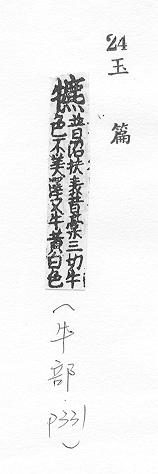 24 玉篇
犥
普沼扶表普三切牛
色不美澤又牛黃白色
(牛部·p331)